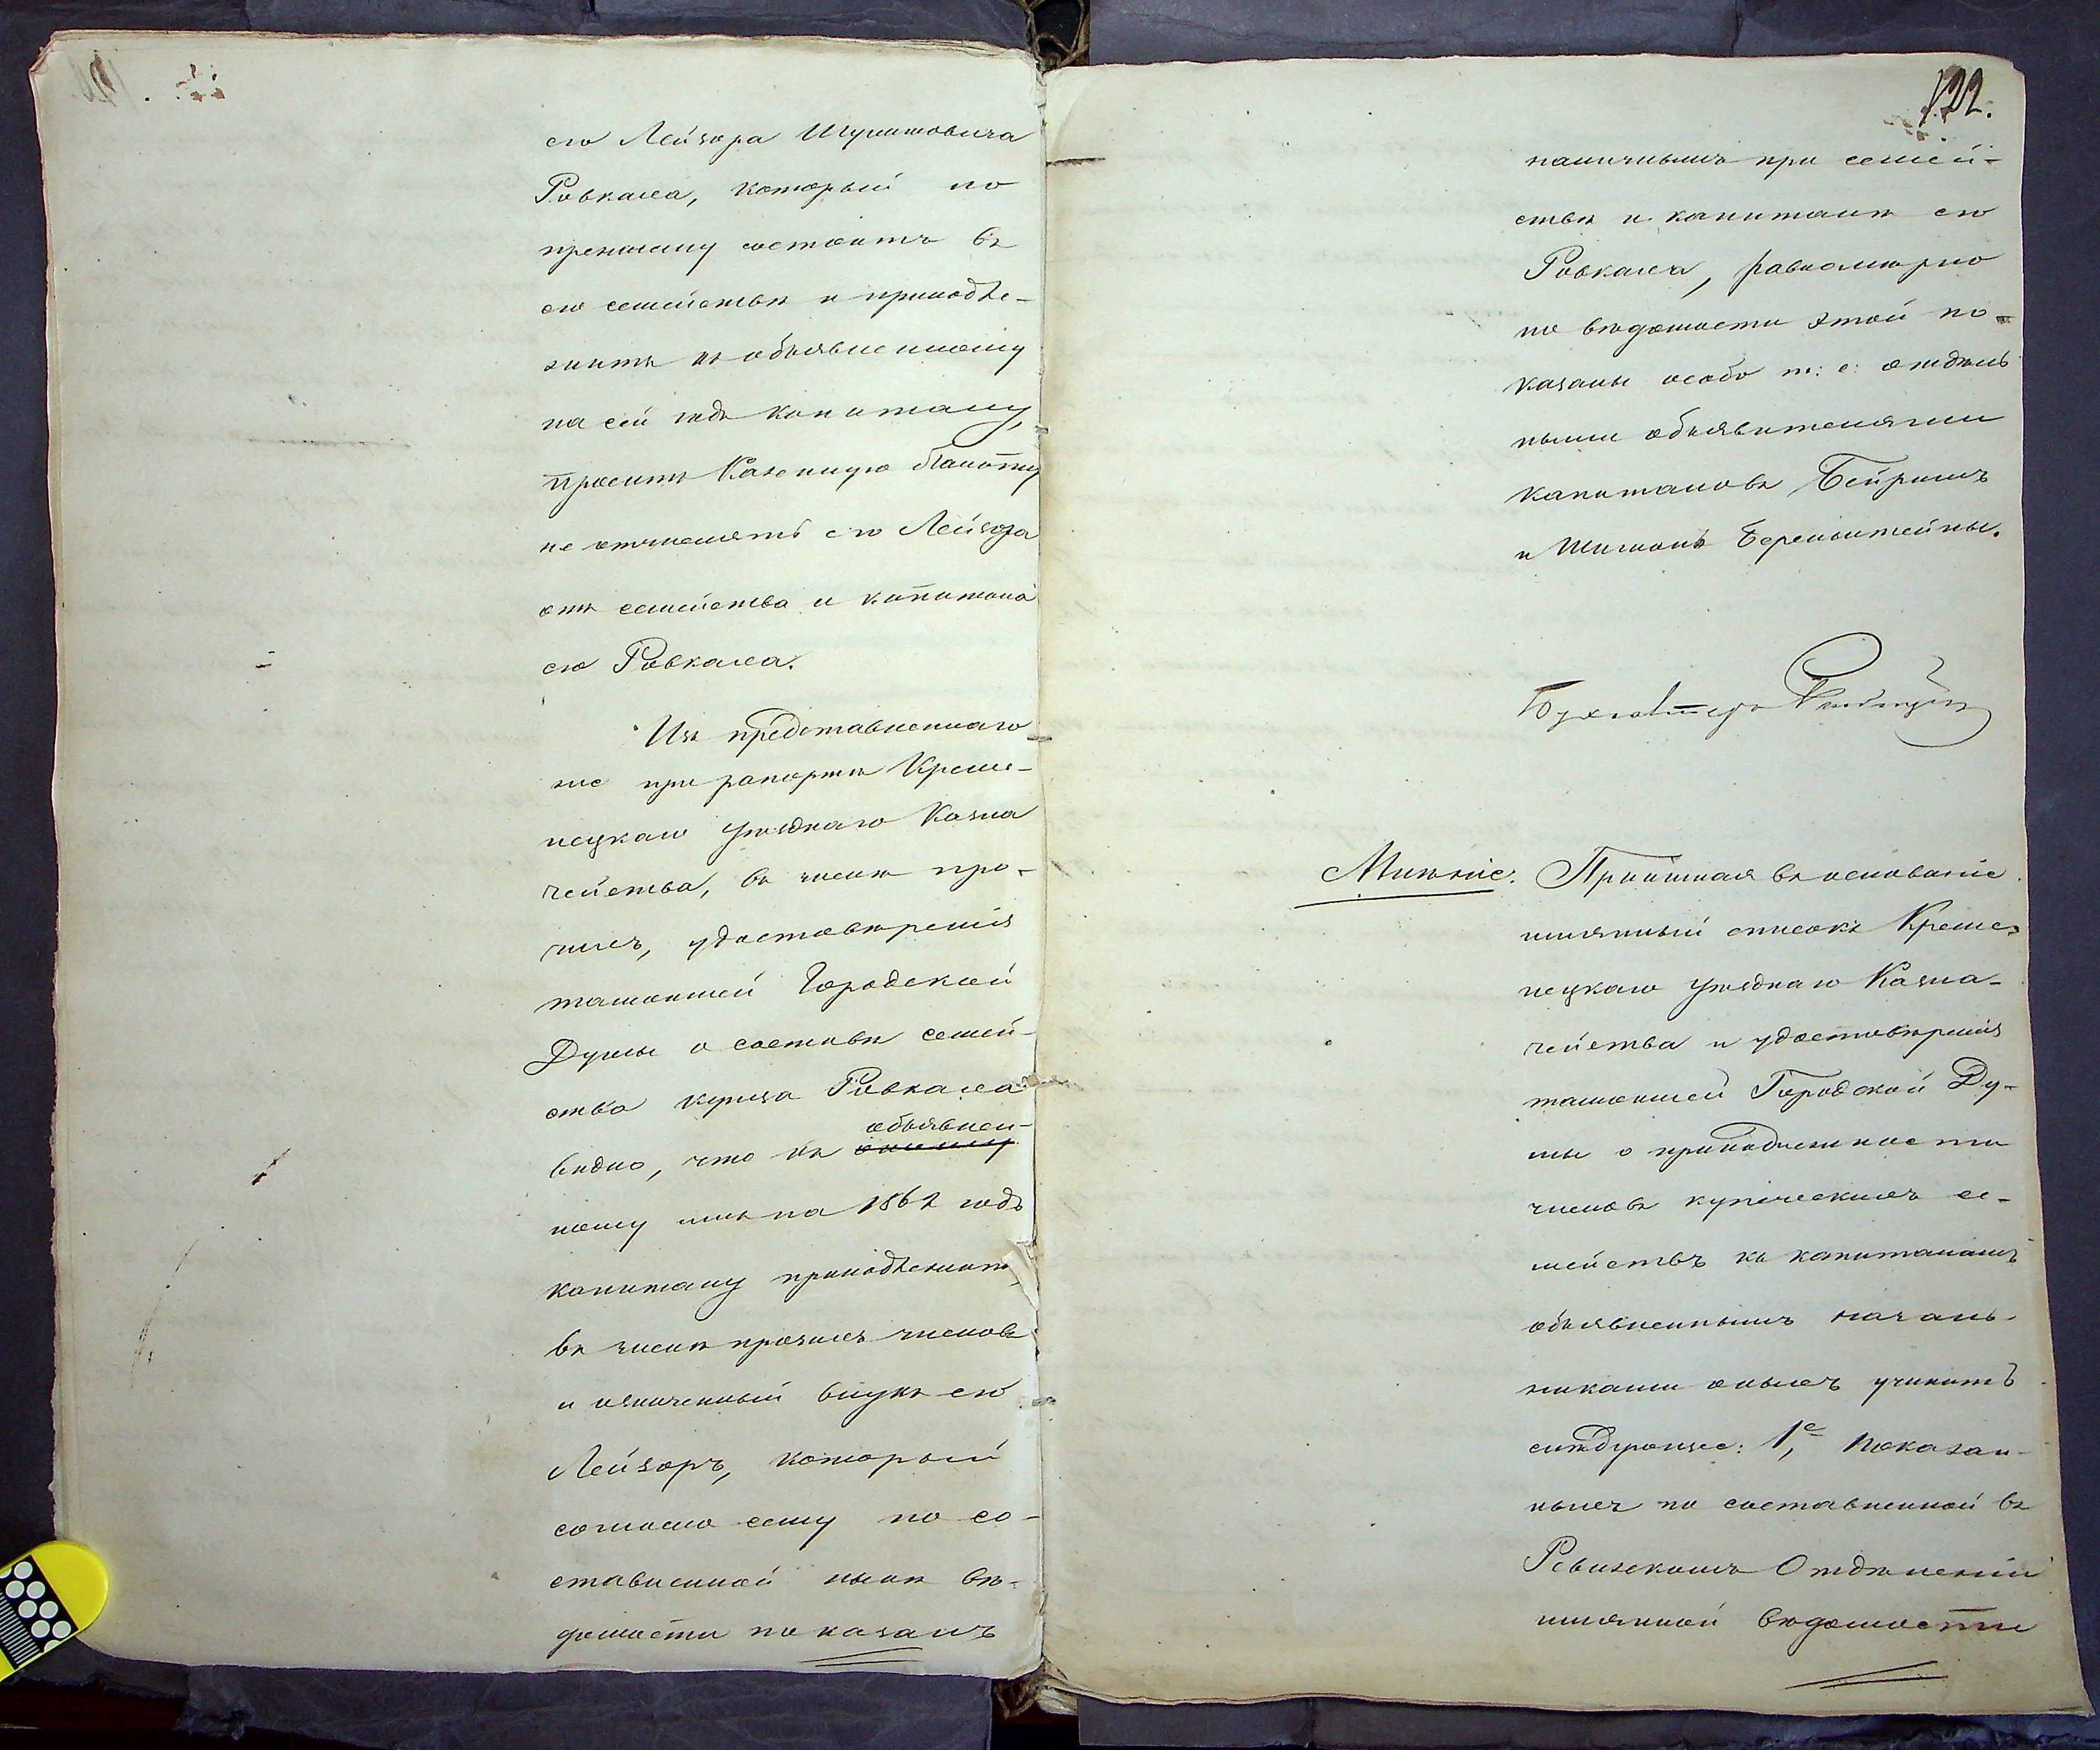 его Лейзора Шулимовича
Ровкаха, который по
прежнему состоитъ въ
его семействѣ и принадле-
житъ къ объявленному
на сей годъ капиталу,
проситъ Казенную Палату
не отчислять его Лейзора
отъ семейства и капитала
его Ровкаха.
Изъ представленнаго
же при рапортѣ Креме-
нецкаго Уѣзднаго Казна
чейства, въ числѣ про-
чихъ, удостовѣренія
тамошней Городской
Думы о составѣ семей-
ства купца Ровкаха
объявлен-
видно, что къ
ному имъ на 1862 годъ
капиталу принадлежитъ
въ числѣ прочихъ членовъ
и означенный внукъ его
Лейзоръ, который
согласно сему по со-
ставленной нынѣ вѣ-
домости показанъ
122.
наличнымъ при семей-
ствѣ и капиталѣ его
Ровкаха, равномѣрно
по вѣдомости этой по-
казаны особо т: е: отдѣль
ными объявителями
капиталовъ Бейришъ
и Шимонъ Беренштейны.
Бухгалтеръ
Мнѣніе. Принимая въ основаніе
имянный списокъ Креме-
нецкаго Уѣзднаго Казна-
чейства и удостовѣренія
тамошней Городской Ду-
мы о принадлежности
членовъ купеческихъ се-
мействъ къ капиталамъ
объявленнымъ началь-
никами оныхъ учинить
слѣдующее: 1е, Показан-
ныхъ по составленной въ
Ревизскомъ Отдѣленіи
имянной вѣдомости